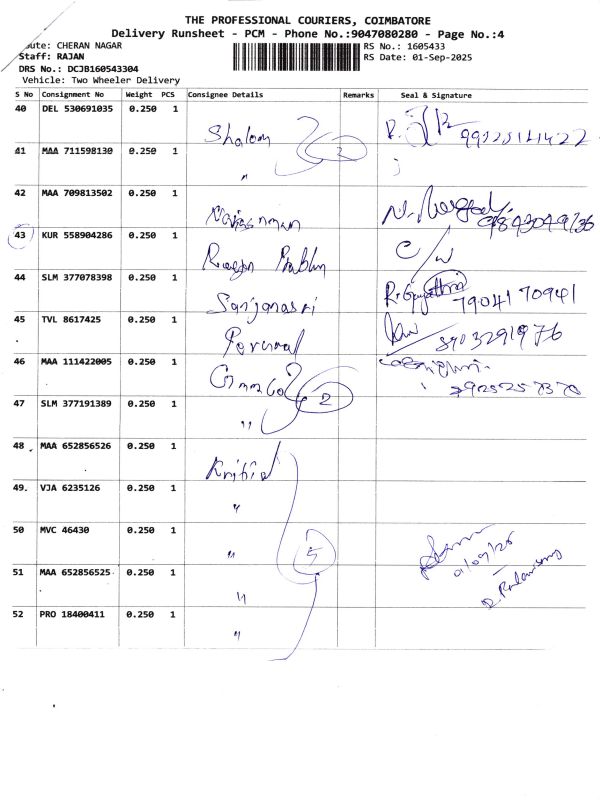 THE PROFESSIONAL COURIERS, COIMBATORE
Delivery Runsheet - PCM - Phone No.:9047080280 - Page No.:4
ute: CHERAN NAGAR RS No.: 1605433
Staff: RAJAN RS Date: 01-Sep-2025
DRS No.: DCJB160543304
Vehicle: Two Wheeler Delivery
S No Consignment No Weight PCS Consignee Details Remarks Seal & Signature
40 DEL 530691035 0.250 1 Shalom
41 MAA 711598130 0.250 1 " 2
42 MAA 709813502 0.250 1
43 KUR 558904286 0.250 1 C/W
44 SLM 377078398 0.250 1 Sanjanasri 7904170941
45 TVL 8617425 0.250 1 Perumal 8903291976
46 MAA 111422005 0.250 1
47 SLM 377191389 0.250 1 " 2
48 MAA 652856526 0.250 1
49. VJA 6235126 0.250 1 "
50 MVC 46430 0.250 1 " 5 01/09/25
51 MAA 652856525 0.250 1 "
52 PRO 18400411 0.250 1 "